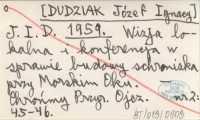 [DUDZIAK Józef Ignacy]
J. I. D. 1959. Wizja lo-
kalna i konferencja w
sprawie budowy schroniska
przy Morskim Oku.
Chrońmy Przyr. Ojcz. nr 2:
45-46.
BT/019/0809